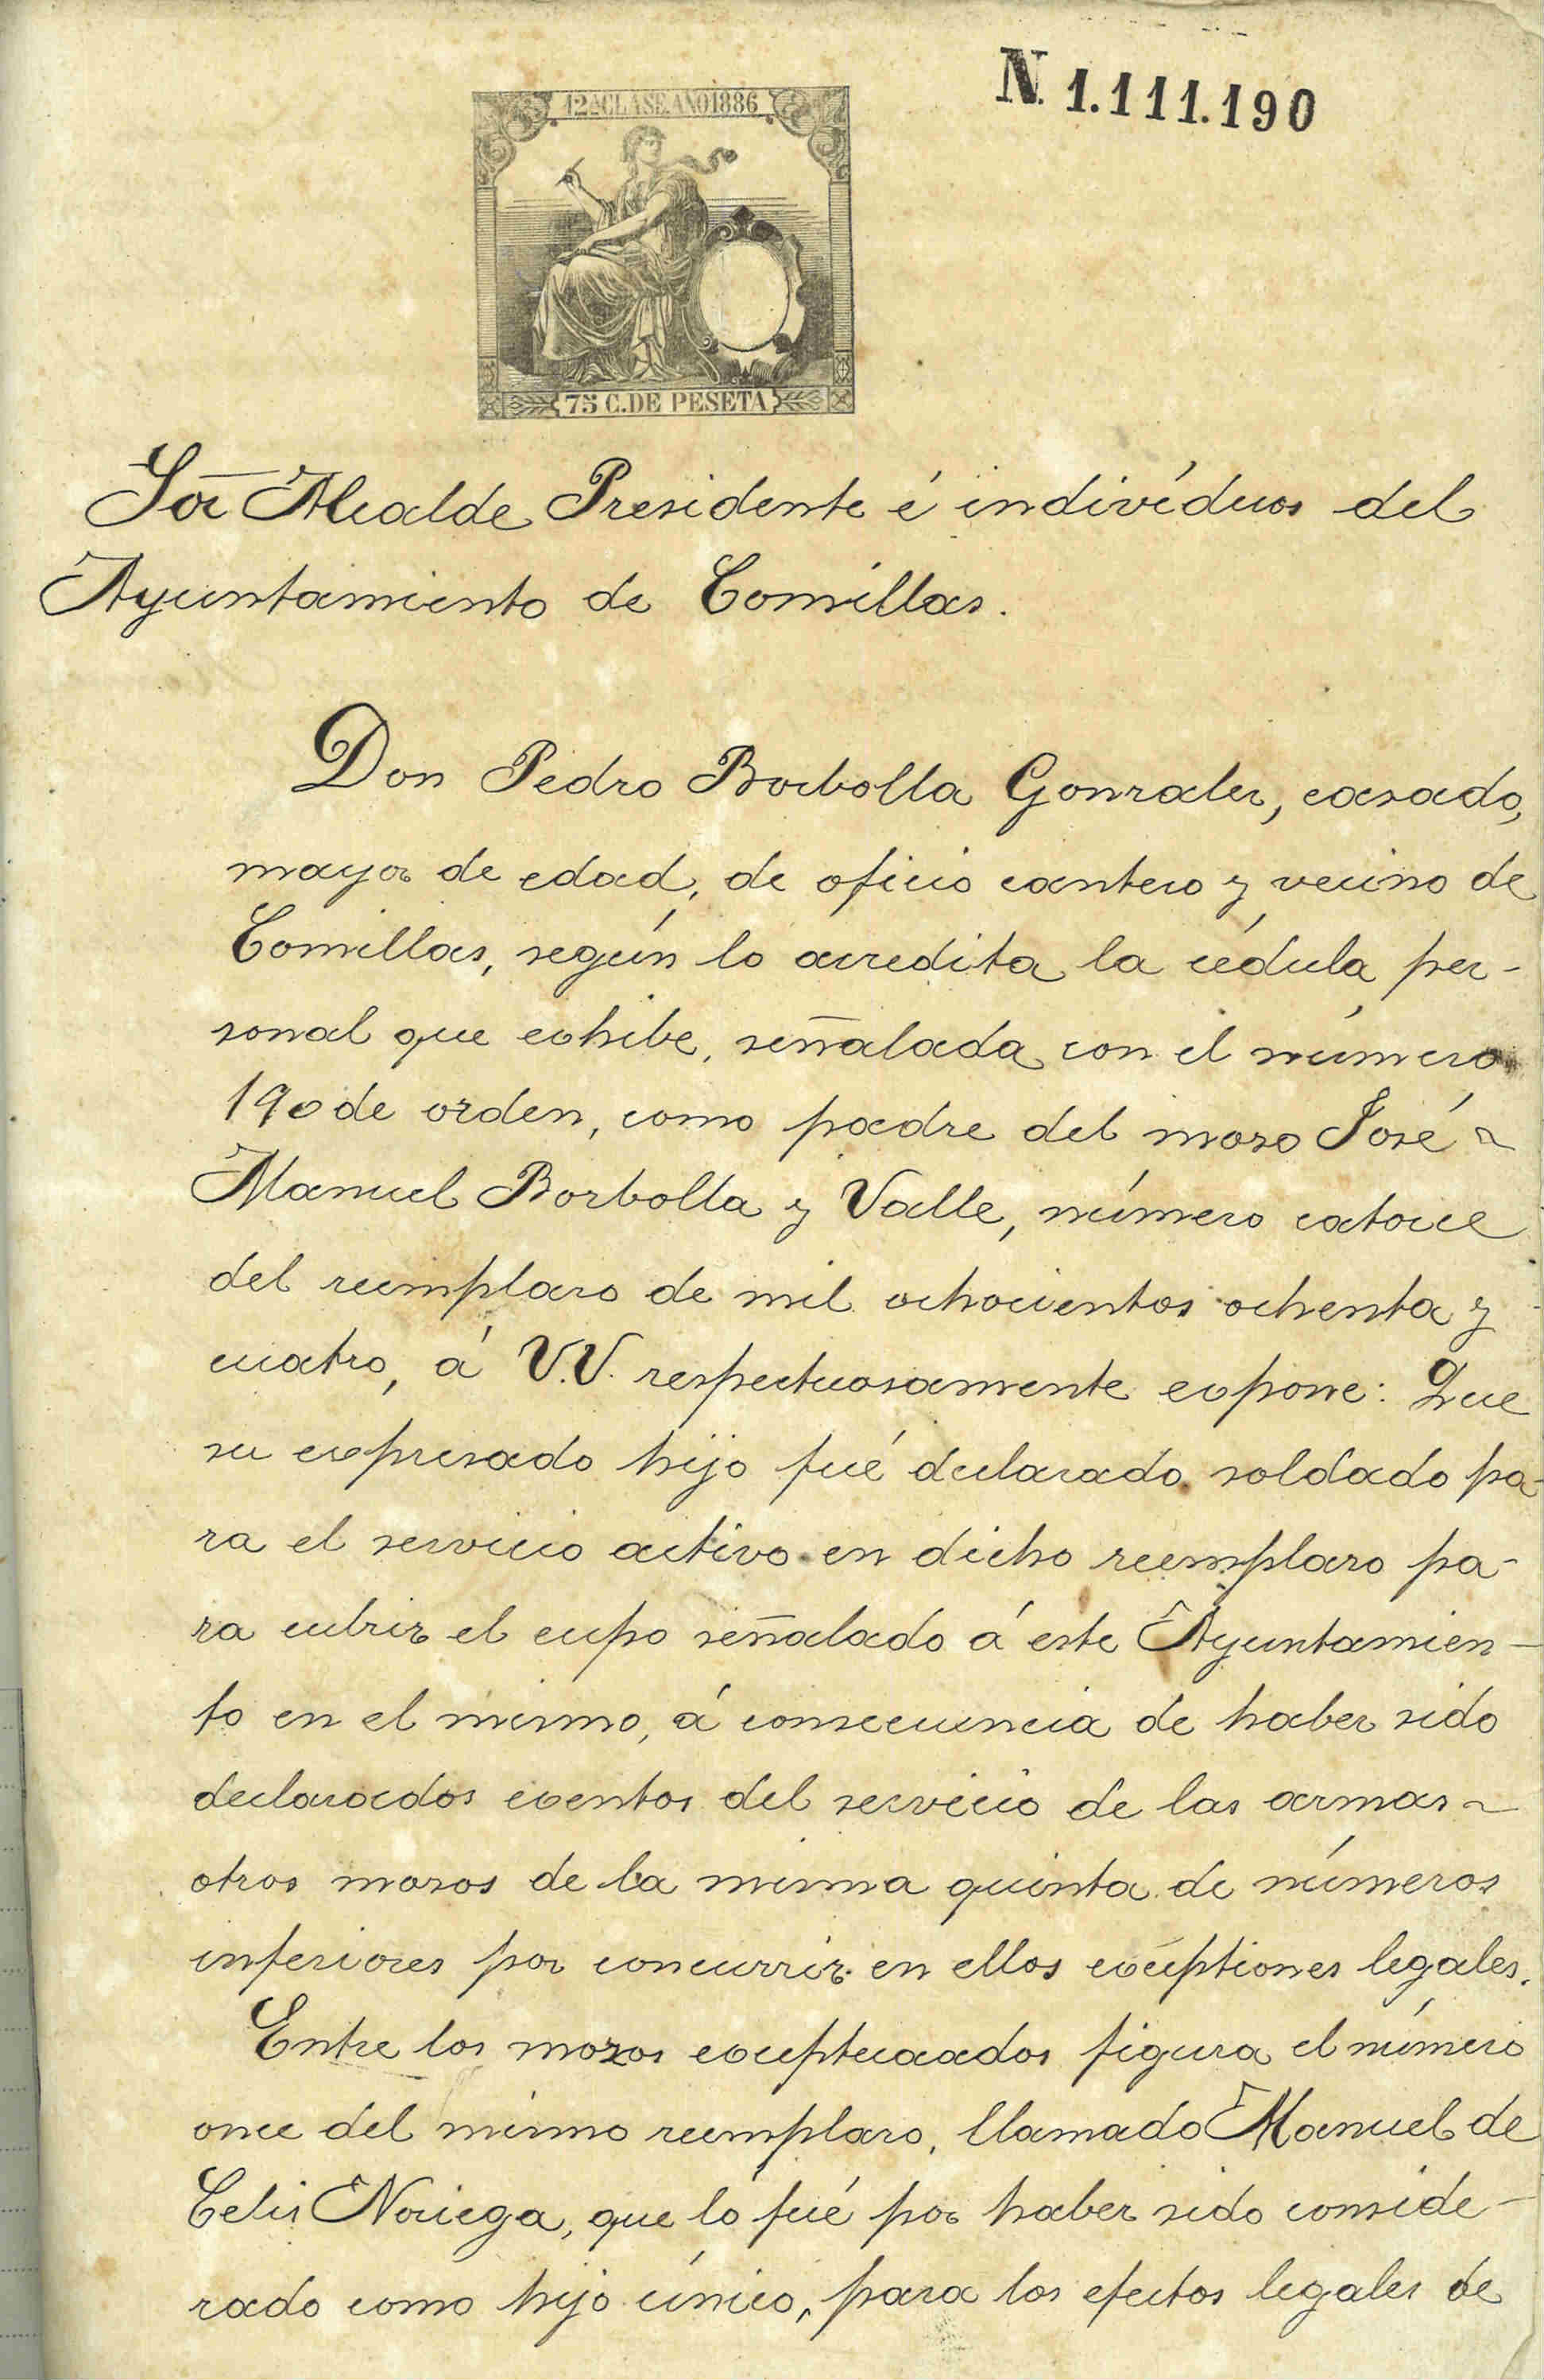 N. 1.111.190
12ª CLASE. AÑO 1886
75 C. DE PESETA
Sor Alcalde Presidente é indivíduos del
Ayuntamiento de Comillas.
Don Pedro Borbolla Gonzalez, casado,
mayor de edad, de oficio cantero y vecino de
Comillas, según lo acredita la cédula per-
sonal que exhibe, señalada con el número
190 de orden, como padre del mozo José
Manuel Borbolla y Valle, número catorce
del reemplazo de mil ochocientos ochenta y
cuatro, á V.V. respectuosamente expone: Que
su expresado hijo fué declarado soldado pa-
ra el servicio activo en dicho reemplazo pa-
ra cubrir el cupo señalado á este Ayuntamien-
to en el mismo, á consecuencia de haber sido
declarados exentos del servicio de las armas
otros mozos de la misma quinta de números
inferiores por concurrir en ellos excepciones legales.
Entre los mozos exceptuados figura el número
once del mismo reemplazo, llamado Manuel de
Celis Noriega, que lo fué por haber sido conside-
rado como hijo único, para los efectos legales de